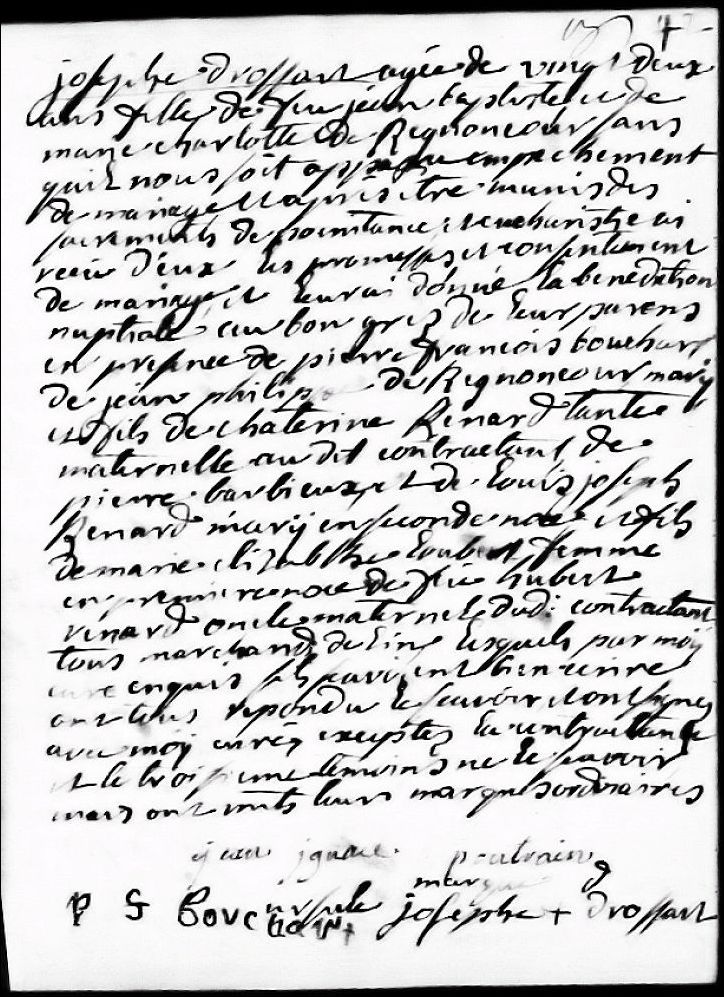 josephe drossart agée de vingt deux
ans fille de feu jean baptiste et de
marie charlotte de Regnoncour sans
quil nous soit apparu empechement
de mariage et apres etre munis des
sacrements de poenitance et eucharistie ai
receu d'eux les promesses et consentement
de mariage et leur ai donné la benediction
nuptiale au bon gres de leur parens
en presence de pierre francois bouchart
de jean philippe de Regnoncour mary
et fils de chaterine Renard tante
maternelle au dit contractant de
pierre barbieux et de louis joseph
Renard mary en seconde noce et fils
de marie elizabethe femme
en premiere noce de feu hubert
renard oncle maternel dudi contractant
tous marchand de lin lesquels par moy
curé enquis sils scavoient bien ecrire
ont tous repondu le scavoir et ont signes
avec moy curé exceptes la contractante
et le troisieme temoins ne le scavoir
mais ont mits leurs marques ordinaires
jean ignace poutrain
marque
P F bouchart ursule josephe + drossart